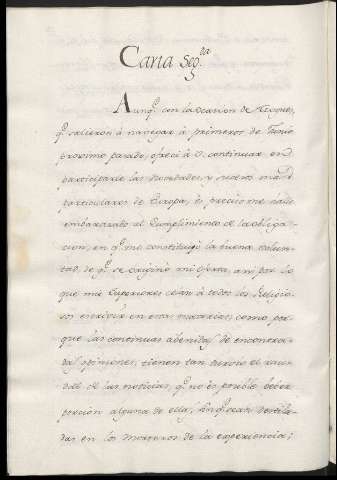 Carta Seg.da
Aunq.e con la ocasion de Buques,
q.e salieron à navegar à primeros de Junio
proximo pasado, ofrecì à V. continuar en
participarle las novedades, y sucesos mas
particulares de Europa, es preciso me halle
embarazado al Cumplimiento de la obliga-
cion, en q.e me constituyò la buena volun-
tad, de q.e se originò mi oferta, asi por lo
que mis Superiores celan à todos los Religio-
sos escrivir en estas materias; como por
que las continuas avenidas de encontra-
das opiniones, tienen tan turvio el rau-
dal de las noticias, q.e no es posible beber
porcion alguna de ellas, sin q.e sean destila-
das en los morteros de la experiencia;